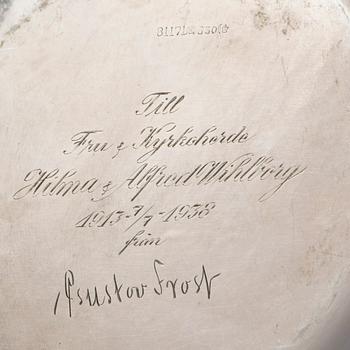 Till
Fru & Kyrkoherde
Hilma & Alfred Wihlborg
1913-7/7-1938
från
Gustov Frost